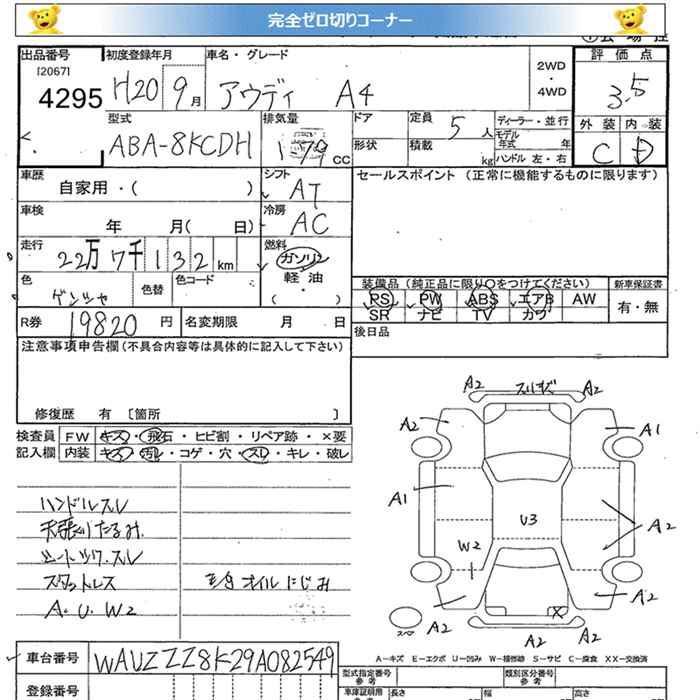 完全ゼロ切りコーナー
出品番号
[2067]
4295
初度登録年月
H20 9月
車名・グレード
アウディ A4
2WD
・
4WD
評価点
3.5
外装 内装
C D
型式
ABA-8KCDH
排気量
1.79 CC
ドア
形状
定員
5人
積載
kg
ディーラー・並行
モデル
年式 年
ハンドル 左・右
車歴
自家用・( )
シフト
AT
車検
年 月( 日)
冷房
AC
走行
22万7千132km
燃料
ガソリン
軽油
・
( )
色
色替
色コード
R券
19820円
名変期限 月 日
セールスポイント(正常に機能するものに限ります)
装備品(純正品に限り○をつけてください)
新車保証書
PS PW ABS エアB AW
SR ナビ TV カワ
有・無
後日品
注意事項申告欄(不具合内容等は具体的に記入して下さい)
修復歴 有 〔箇所 〕
検査員
記入欄
FW キズ・飛石・ヒビ割・リペア跡・×要
内装 キズ・汚レ・コゲ・穴・スレ・キレ・破レ
ハンドルスレ
天張りたるみ
シートツヤ.スレ
スタットレス
A.U.W2
オイルにじみ
A2 スリキズ A2
A2
A1
A1
U3
A2
W2
A2
A2
A2
A2
スペア
A−キズ E−エクボ U−凹み W−補修跡 S−サビ C−腐食 XX−交換済
車台番号
WAUZZZ8K29A082549
登録番号
型式指定番号
参考
類別区分番号
参考
車庫証明用
参考
長さ
幅
高さ